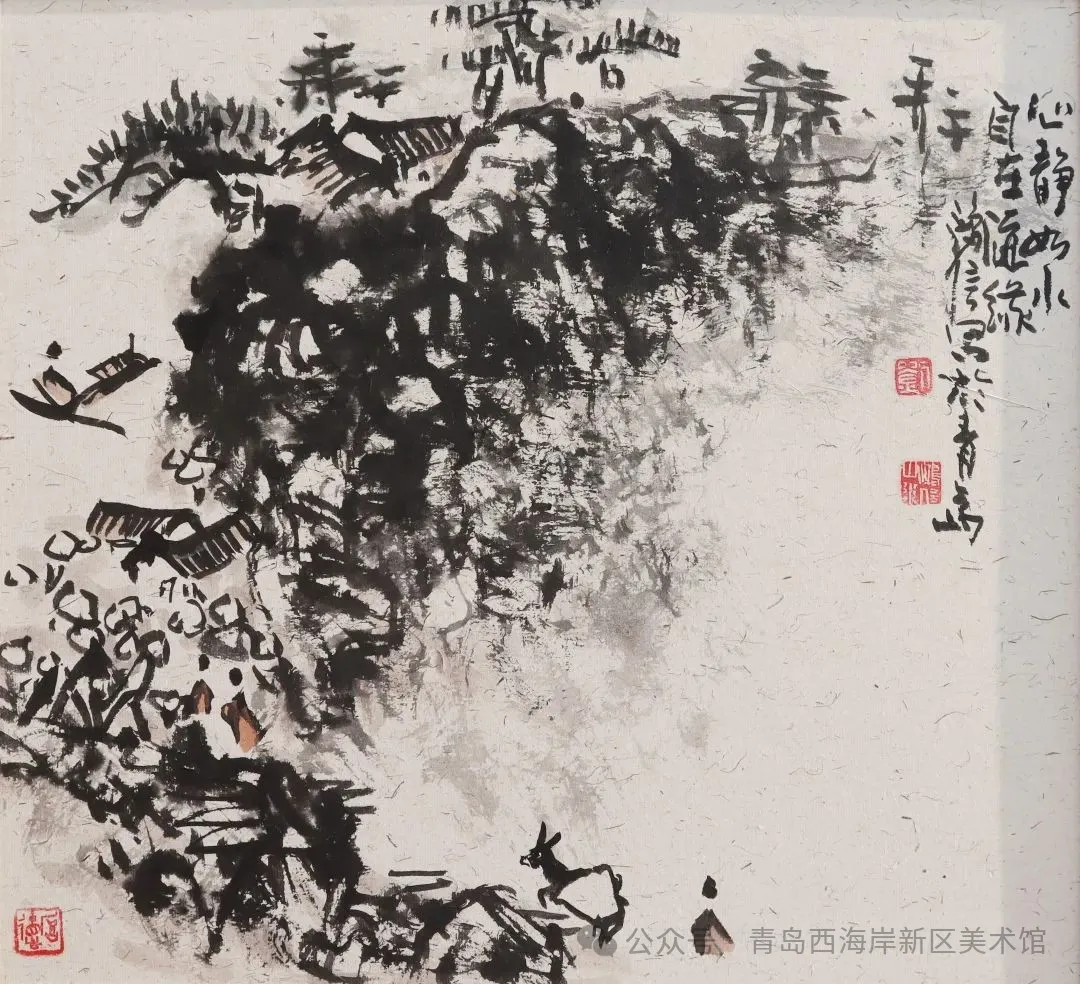 心静如水
自在随缘
鸿信写於青岛
公众号 · 青岛西海岸新区美术馆